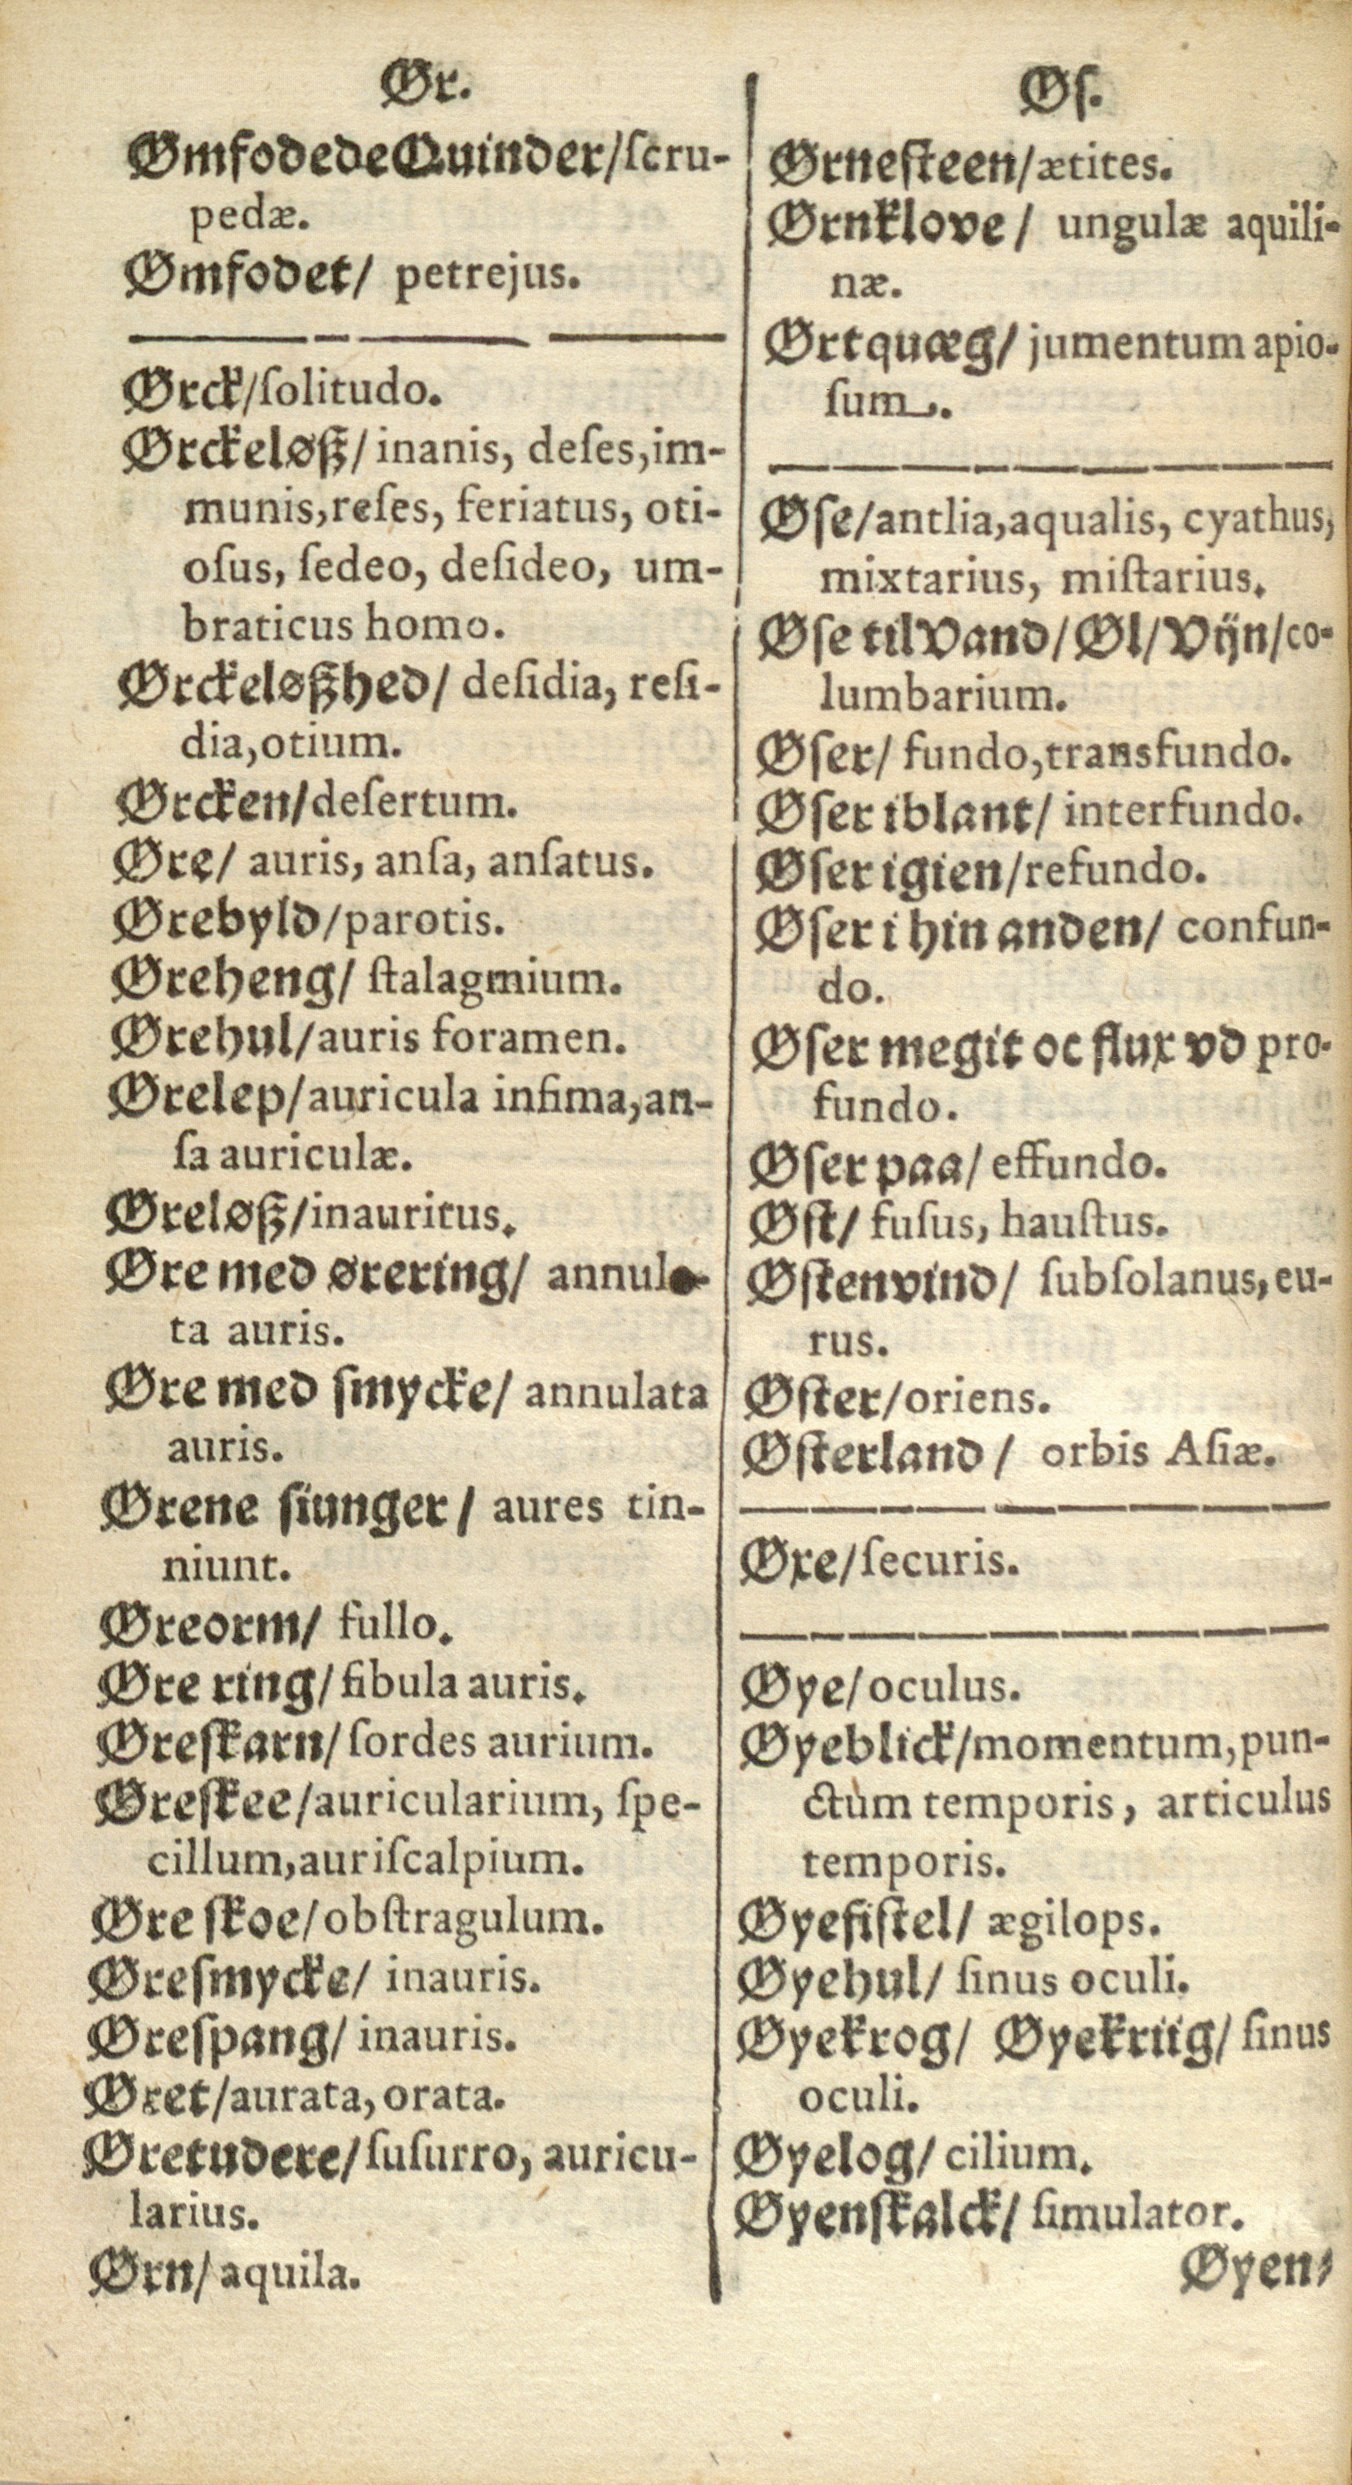 Ør.
Ømfodede Quinder/ſcru-
pedæ.
Ømfodet/ petrejus.
Ørck/ſolitudo.
Ørckeløß/ inanis, deſes,im-
munis,reſes, feriatus, oti-
oſus, ſedeo, deſideo, um-
braticus homo.
Ørckeløßhed/ deſidia, reſi-
dia,otium.
Ørcken/deſertum.
Øre/ auris, anſa, anſatus.
Ørebyld/parotis.
Øreheng/ ſtalagmium.
Ørehul/auris foramen.
Ørelep/auricula infima,an-
ſa auriculæ.
Øreløß/inauritus.
Øre med ørering/ annula-
ta auris.
Øre med ſmycke/ annulata
auris.
Ørene ſiunger/ aures tin-
niunt.
Øreorm/ fullo.
Øre ring/fibula auris.
Øreſkarn/ſordes aurium.
Øreſkee/auricularium, ſpe-
cillum,auriſcalpium.
Øre ſkoe/obſtragulum.
Øreſmycke/ inauris.
Øreſpang/ inauris.
Øret/aurata, orata.
Øretudere/ſuſurro, auricu-
larius.
Ørn/ aquila.
Øſ.
Ørneſteen/ætites.
Ørnklove/ ungulæ aquili-
næ.
Ørtquæg/ jumentum apio-
ſum.
Øſe/antlia,aqualis, cyathus,
mixtarius, miſtarius.
Øſe til Vand/Øl/Vijn/co-
lumbarium.
Øſer/ fundo,transfundo.
Øſer iblant/ interfundo.
Øſer igien/refundo.
Øſer i hin anden/ confun-
do.
Øſer megit oc flux vd pro-
fundo.
Øſer paa/ effundo.
Øſt/ fuſus, hauſtus.
Øſtenvind/ ſubſolanus, eu-
rus.
Øſter/oriens.
Øſterland/ orbis Aſiæ.
Øxe/ſecuris.
Øye/oculus.
Øyeblick/momentum,pun-
ctùm temporis, articulus
temporis.
Øyefiſtel/ ægilops.
Øyehul/ ſinus oculi.
Øyekrog/ Øyekriig/ ſinus
oculi.
Øyelog/ cilium.
Øyenſkalck/ ſimulator.
Øyen-